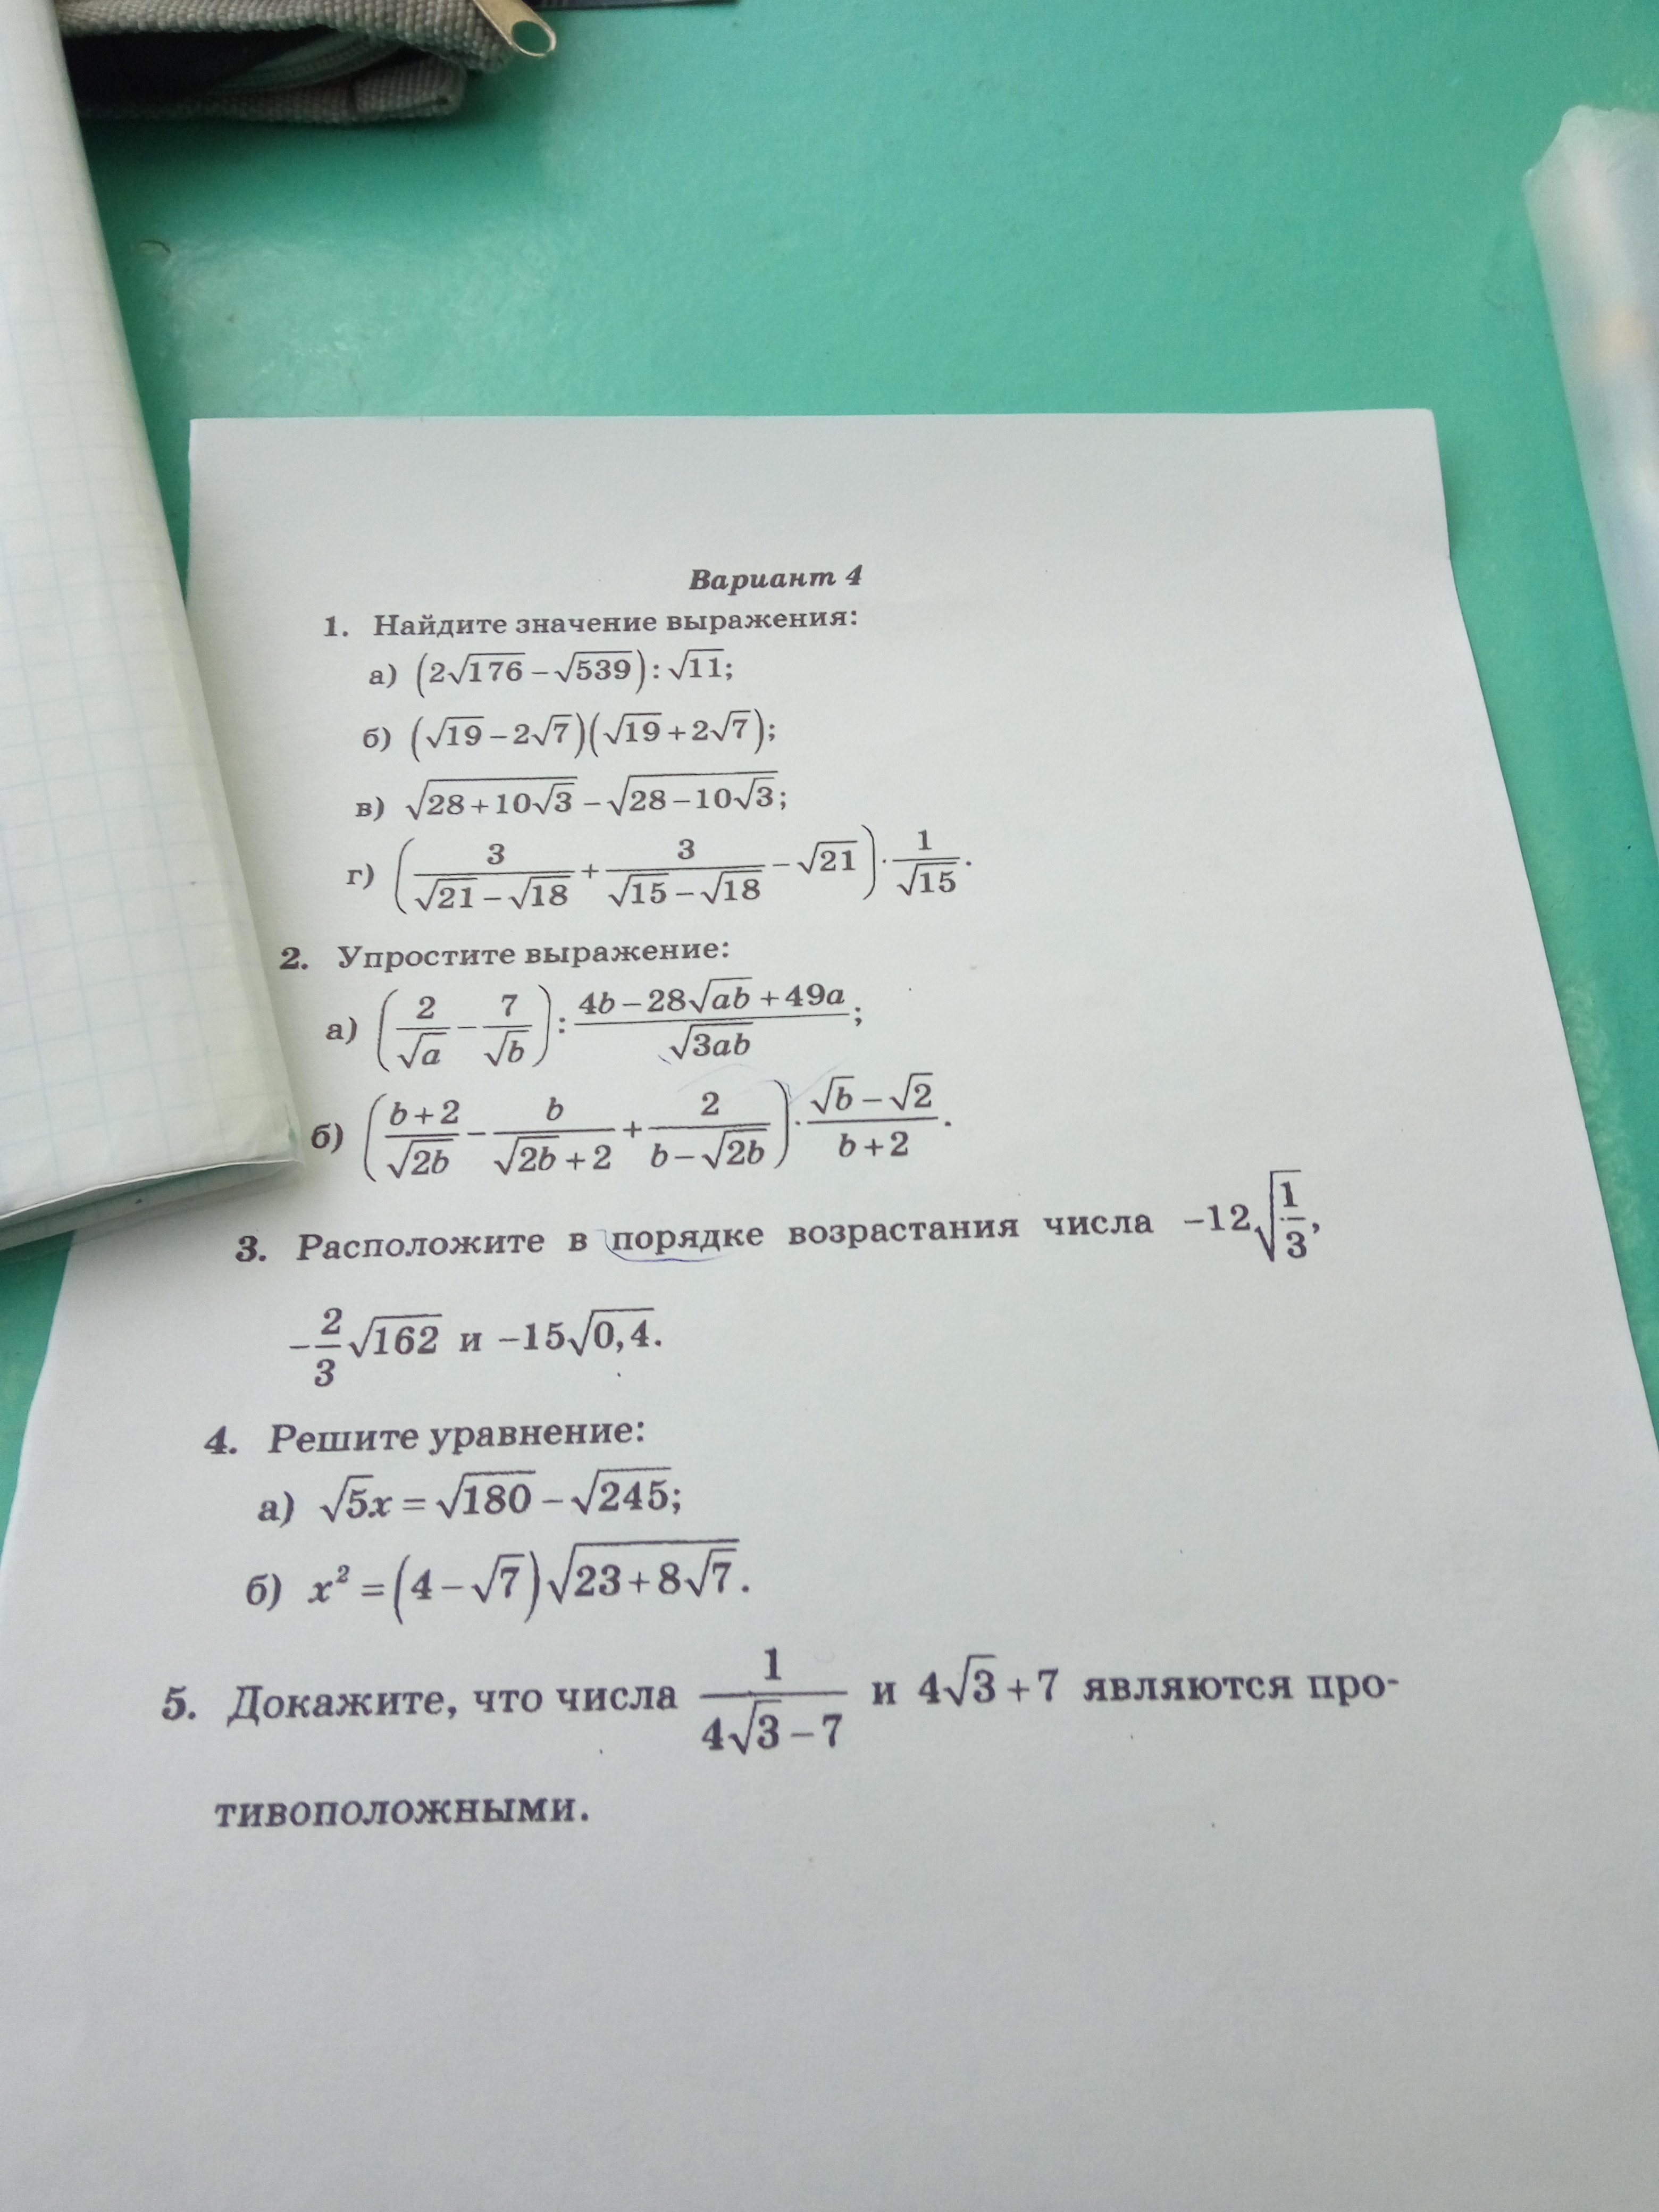 Вариант 4
1. Найдите значение выражения:
а) (2√176 − √539) : √11;
б) (√19 − 2√7)(√19 + 2√7);
в) √(28 + 10√3) − √(28 − 10√3);
г) (3/(√21 − √18) + 3/(√15 − √18) − √21) · 1/√15.
2. Упростите выражение:
а) (2/√a − 7/√b) : (4b − 28√ab + 49a)/√3ab;
б) ((b + 2)/√2b − b/(√2b + 2) + 2/(b − √2b)) · (√b − √2)/(b + 2).
3. Расположите в порядке возрастания числа −12√(1/3),
−2/3√162 и −15√0,4.
4. Решите уравнение:
а) √5x = √180 − √245;
б) x² = (4 − √7)√(23 + 8√7).
5. Докажите, что числа 1/(4√3 − 7) и 4√3 + 7 являются про-
тивоположными.